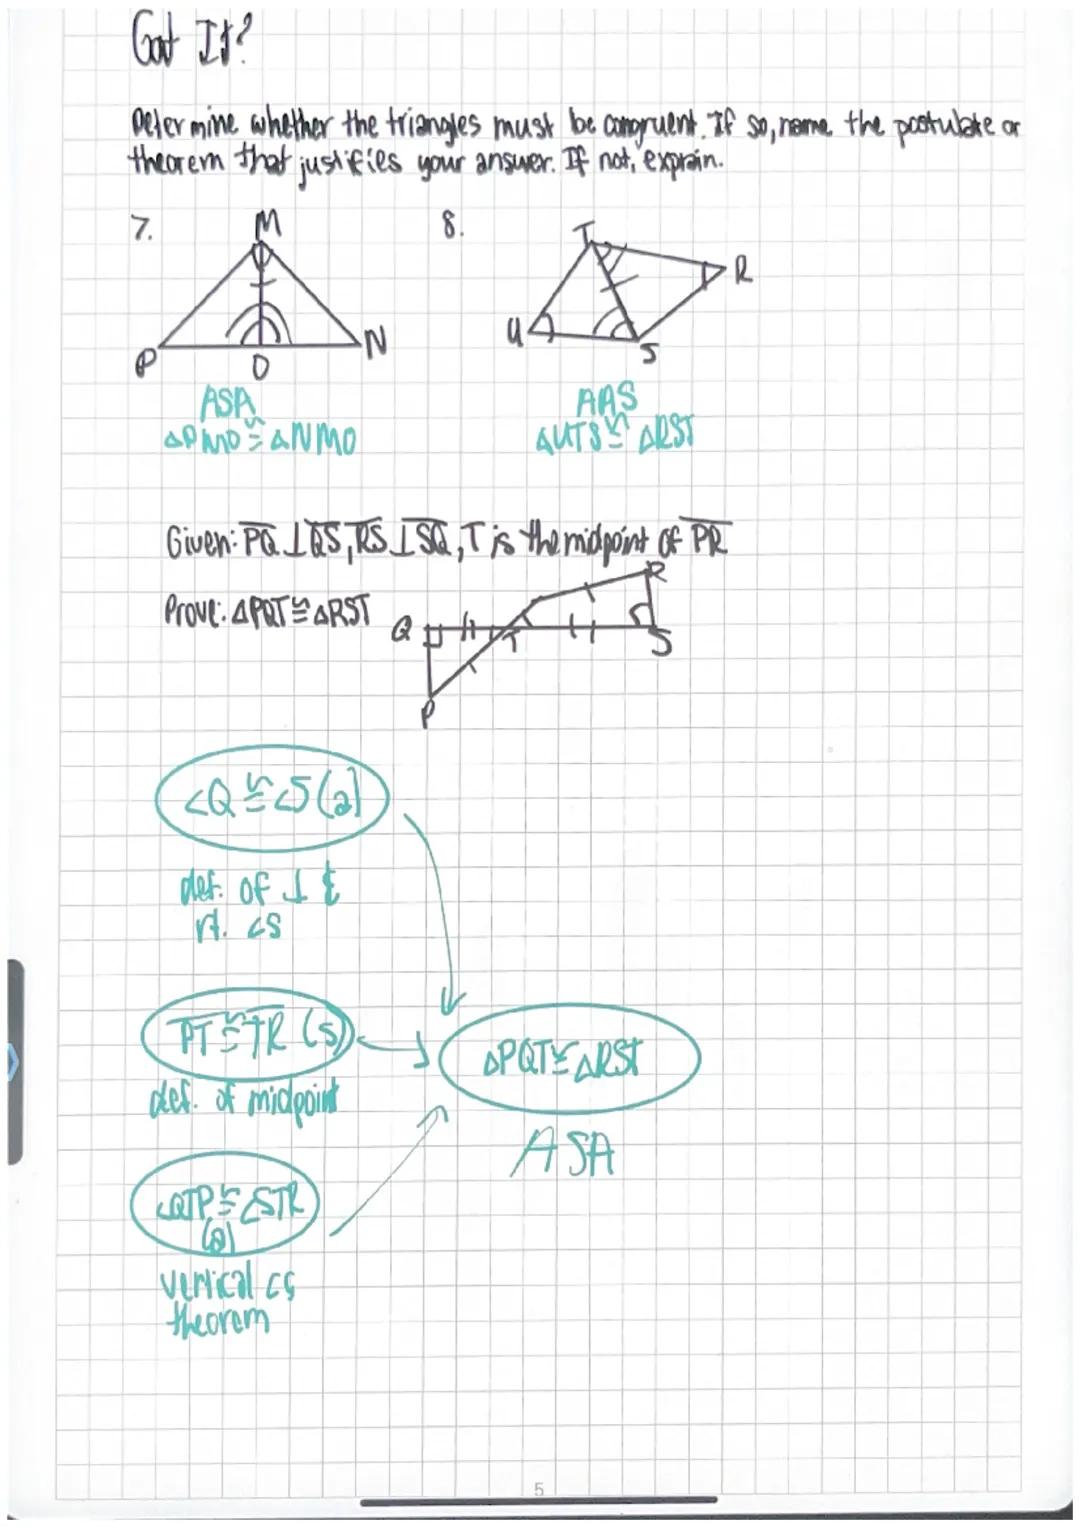 Got It?
Determine whether the triangles must be congruent. If so, name the postulate or
theorem that justifies your answer. If not, exprain.
7.
M
P
O
N
8.
T
R
U
S
ASA
△PMO ≅ △NMO
AAS
△UTS ≅ △RST
Given: PQ ⊥ QS, RS ⊥ SQ, T is the midpoint of PR
Prove: △PQT ≅ △RST
Q
R
T
S
P
<Q ≅ <S (a)
def. of ⊥ &
rt. <s
PT ≅ TR (s)
def. of midpoint
△PQT ≅ △RST
ASA
<QTP ≅ <STR
(a)
vertical <s
theorem
5